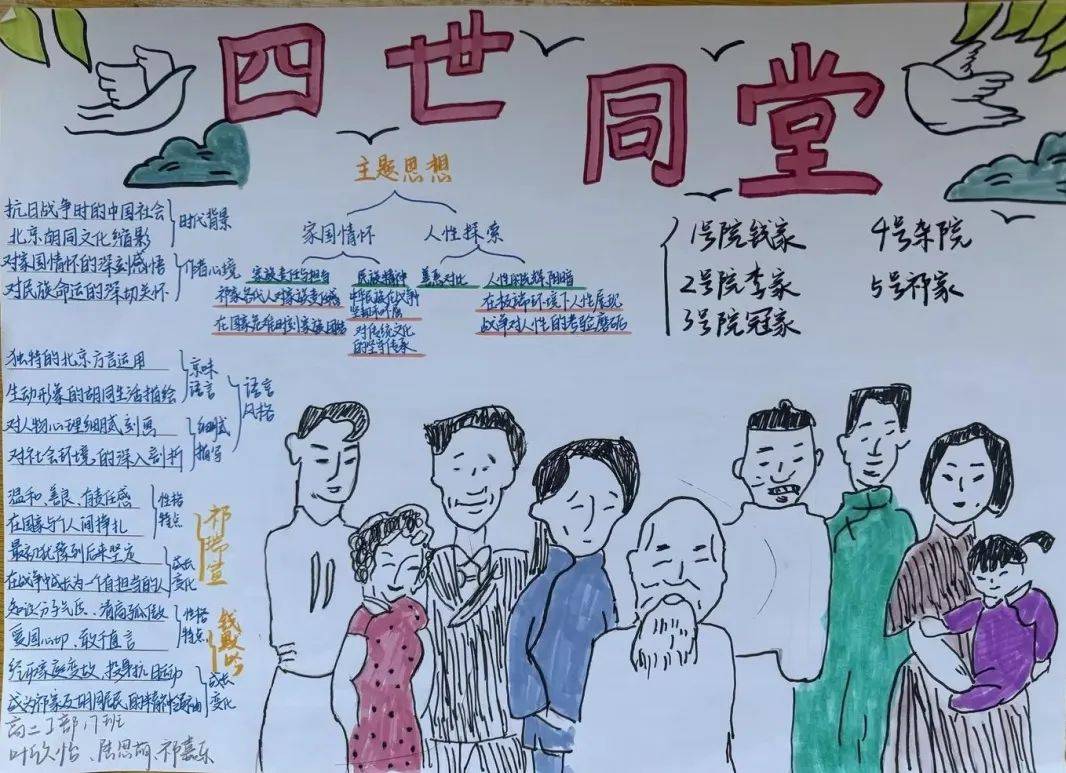 四世同堂
主题思想
家国情怀 人性探索
家族责任与担当 民族精神 善恶对比
祁家各代人对家族责任感
在国家危难时刻家族团结
中华民族在战争
坚韧不屈
对传统文化
的坚守传承
在极端环境下人性展现
战争对人性的考验磨砺
1号院钱家 4号杂院
2号院李家 5号祁家
3号院冠家
抗日战争时的中国社会
北京胡同文化缩影
时代背景
对家国情怀的深刻感悟
对民族命运的深切关怀
作者心境
独特的北京方言运用
生动形象的胡同生活描绘
京味
语言
对人物心理细腻刻画
对社会环境的深入剖析
细腻
描写
语言
风格
温和、善良、有责任感
在国家与个人间挣扎
性格
特点
最初犹豫到后来坚定
在战争中成长为一个有担当的人
成长
变化
祁瑞宣
知识分子气质、清高孤傲
爱国心切、敢于直言
性格
特点
经历家庭变故、投身抗日运动
成为祁家及胡同居民的精神
成长
变化
钱默吟
高二丁部,7班
叶欣怡、陆思萌、祁嘉乐